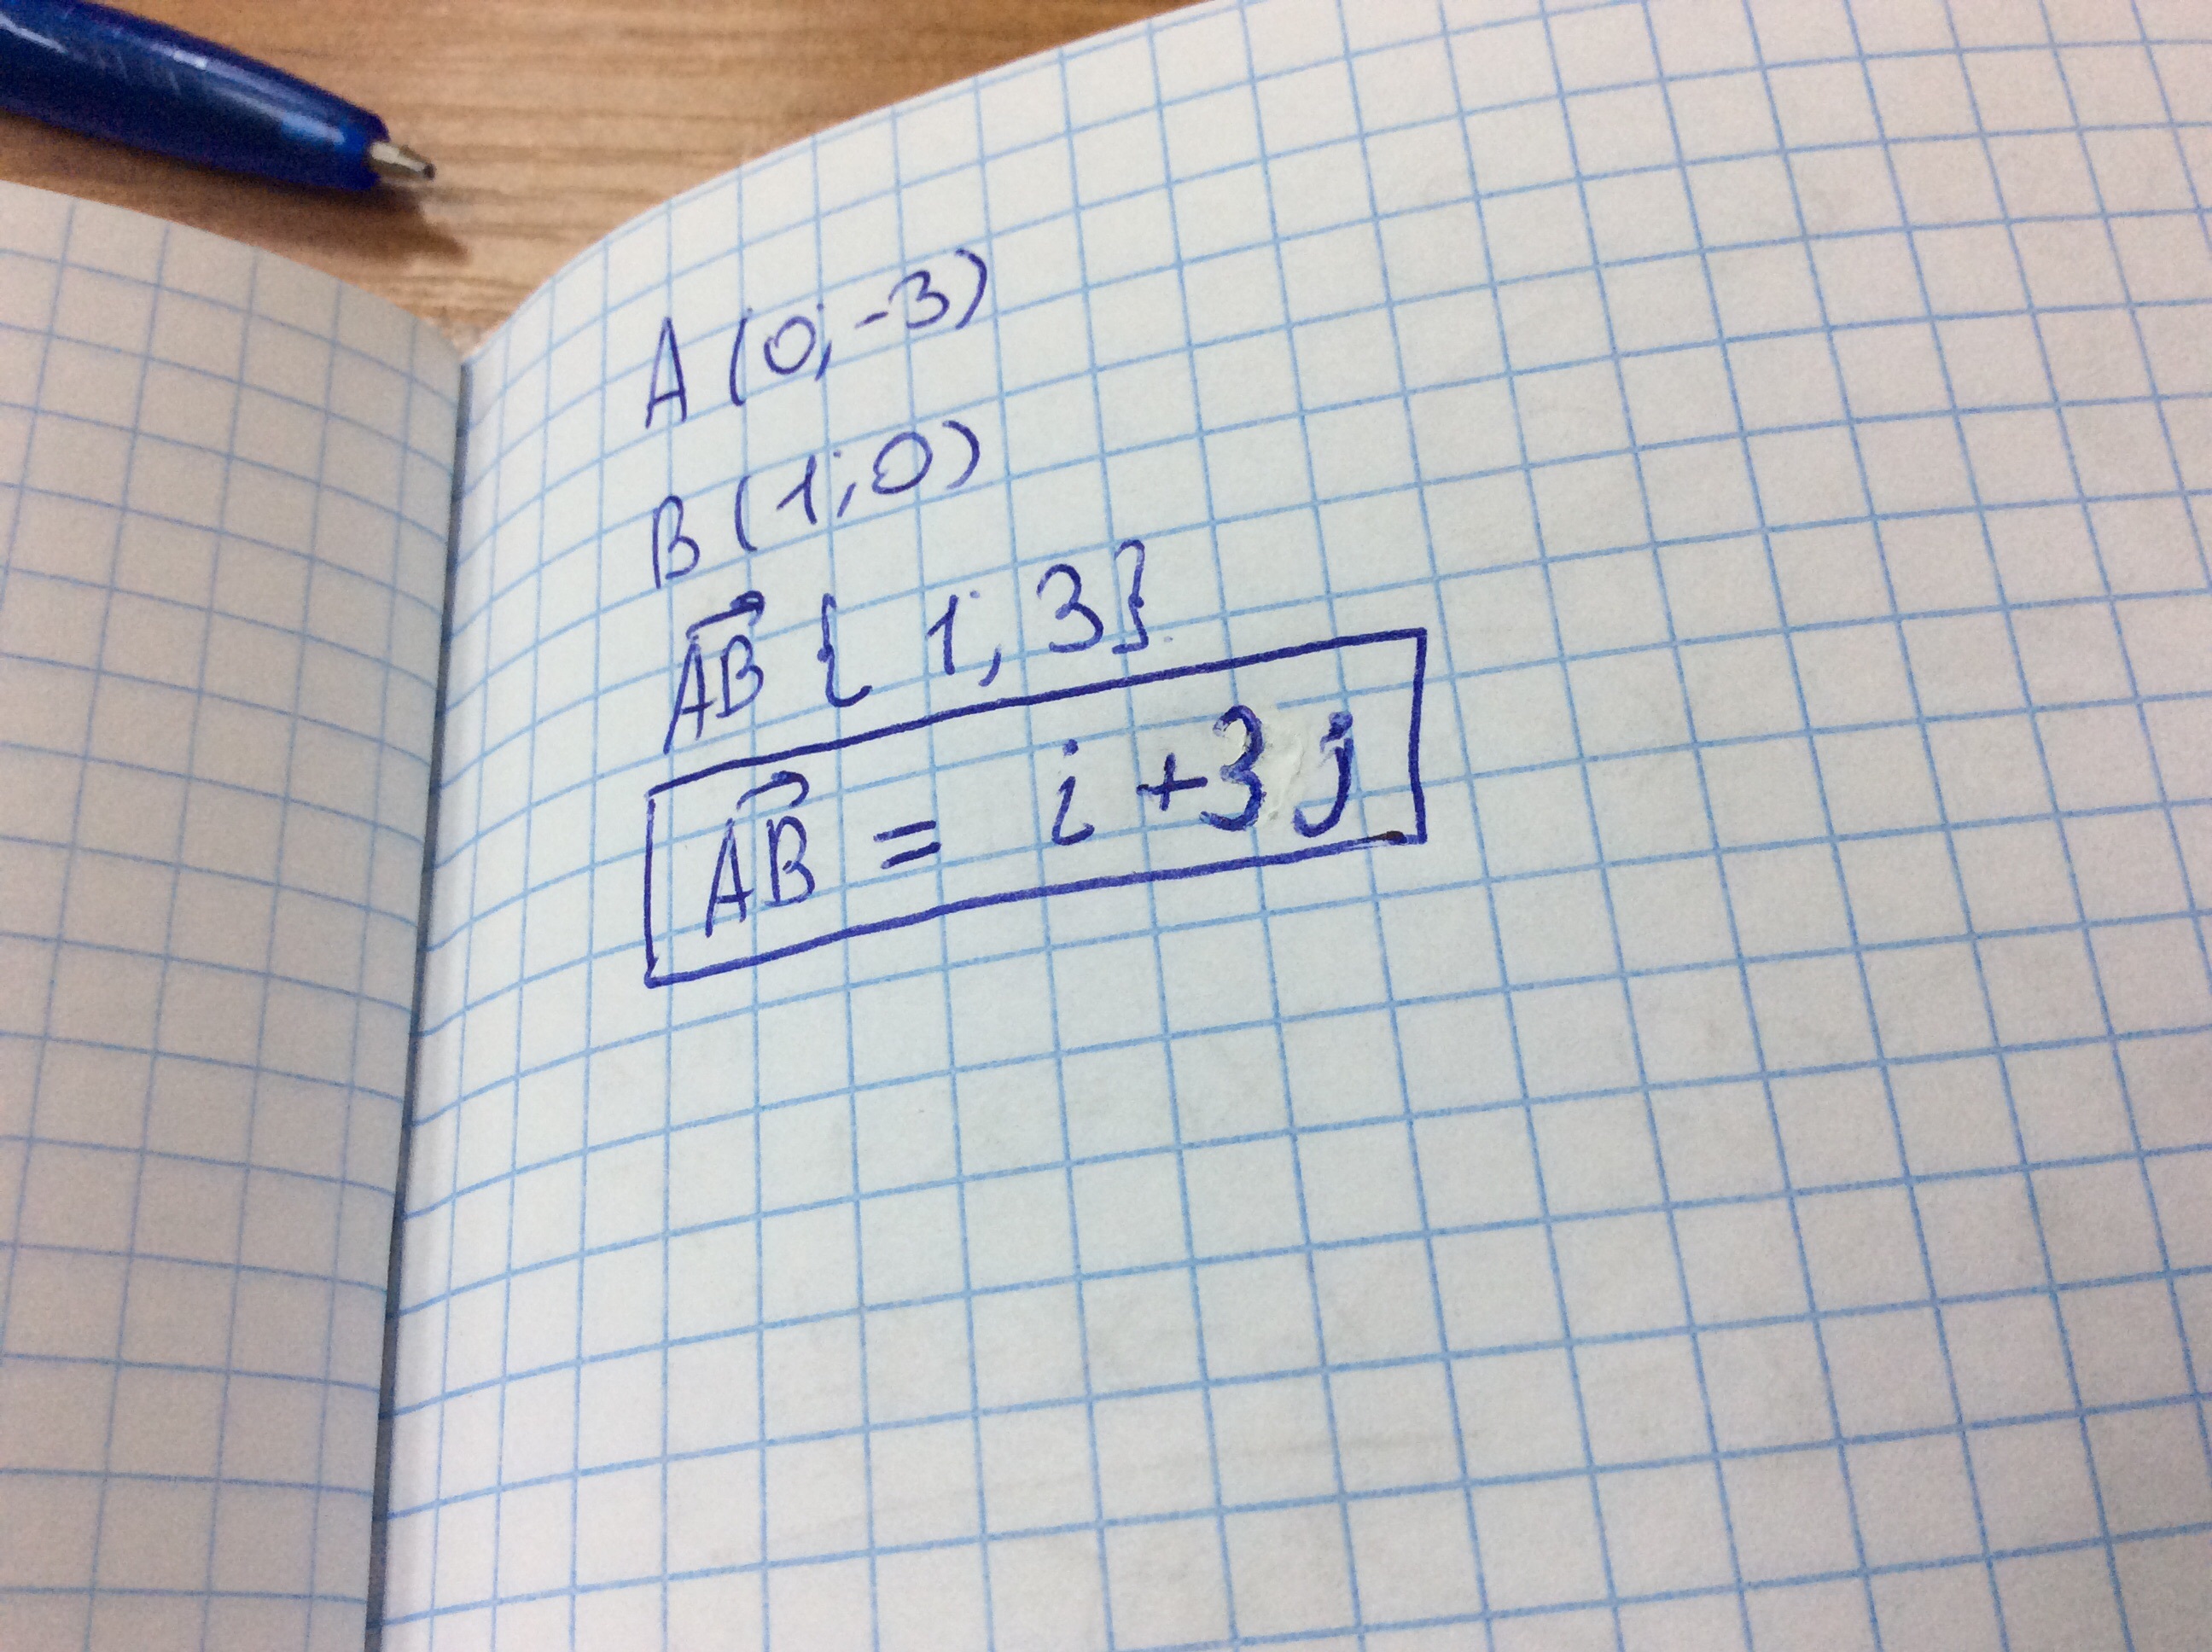 A (0; -3)
B (1; 0)
A⃗B⃗ { 1; 3}
A⃗B⃗ = i + 3 j